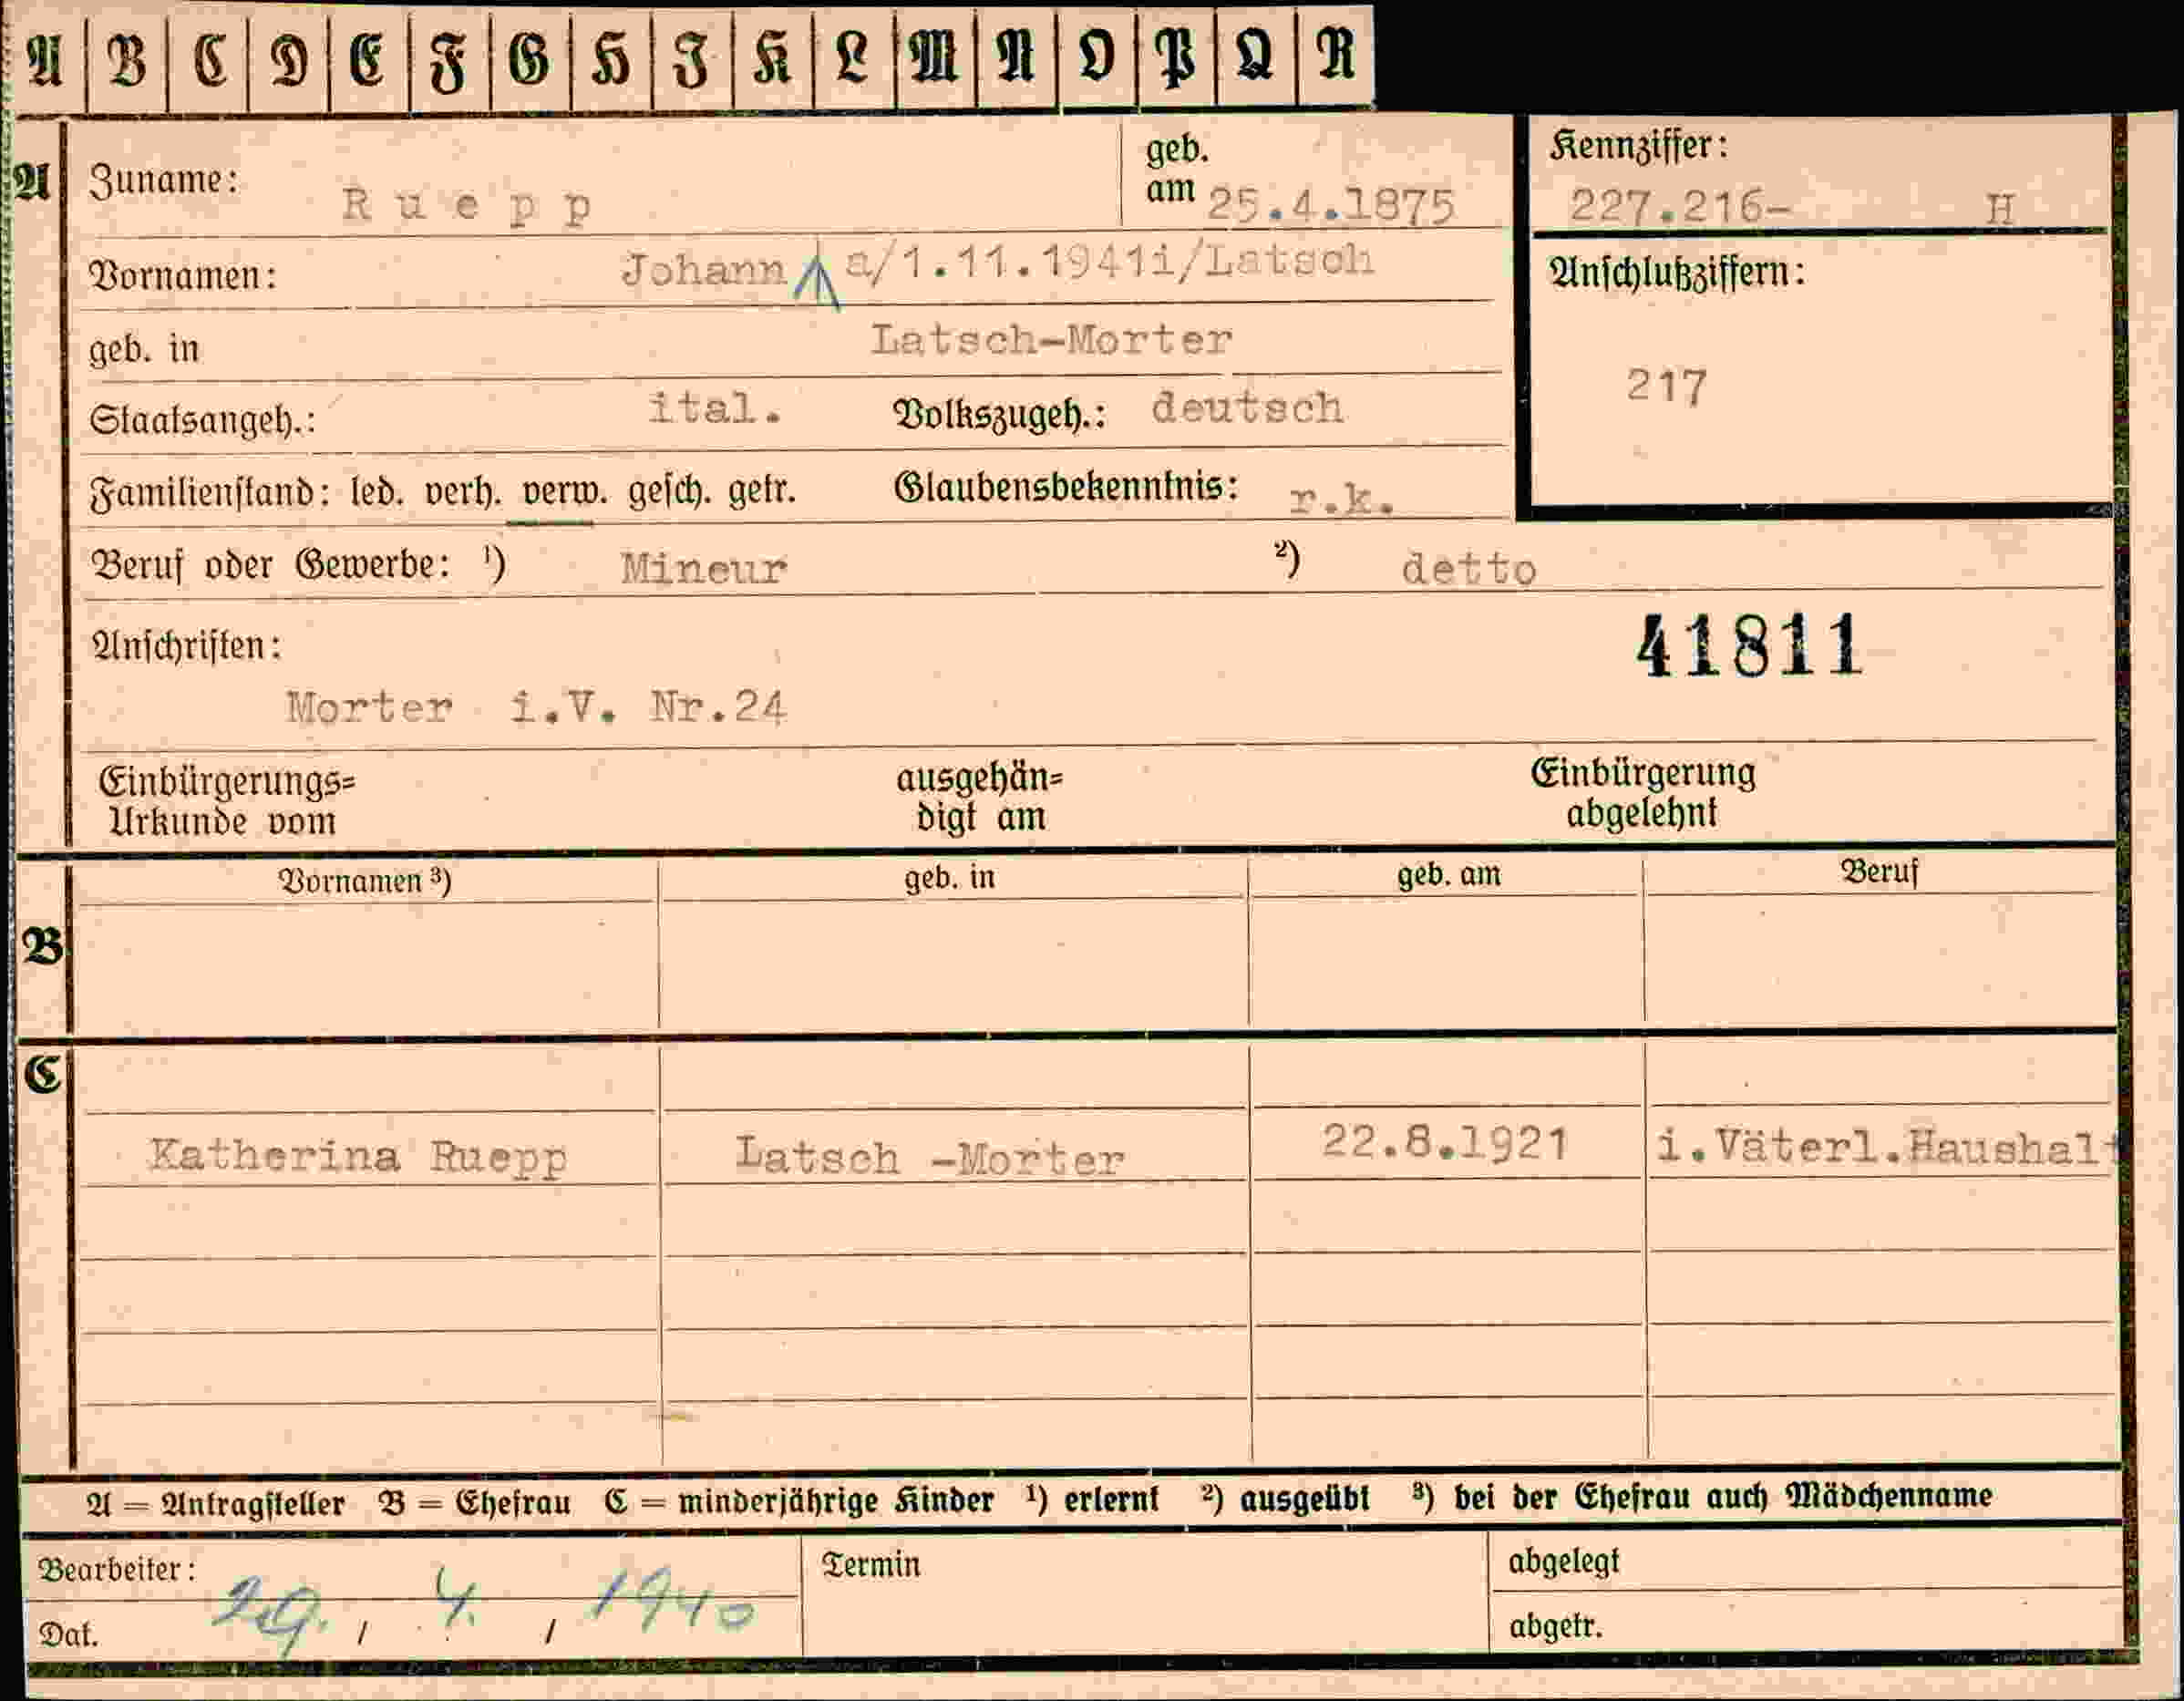 A B C D E F G H I K L M N O P Q R
A Zuname: Ruepp geb. am 25.4.1875
Kennziffer: 227.216- H
Vornamen: Johann a/1.11.1941i/Latsch
Anschlußziffern:
217
geb. in Latsch-Morter
Staatsangeh.: ital. Volkszugeh.: deutsch
Familienstand: led. verh. verw. gesch. getr. Glaubensbekenntnis: r.k.
Beruf oder Gewerbe: ¹) Mineur ²) detto
Anschriften: 41811
Morter i.V. Nr.24
Einbürgerungs= ausgehän= Einbürgerung
Urkunde vom digt am abgelehnt
Vornamen ³) geb. in geb. am Beruf
B
C
Katherina Ruepp Latsch -Morter 22.8.1921 i.Väterl.Haushalt
A = Antragsteller B = Ehefrau C = minderjährige Kinder ¹) erlernt ²) ausgeübt ³) bei der Ehefrau auch Mädchenname
Bearbeiter: Termin abgelegt
Dat. 29. / 4. / 1940 abgetr.